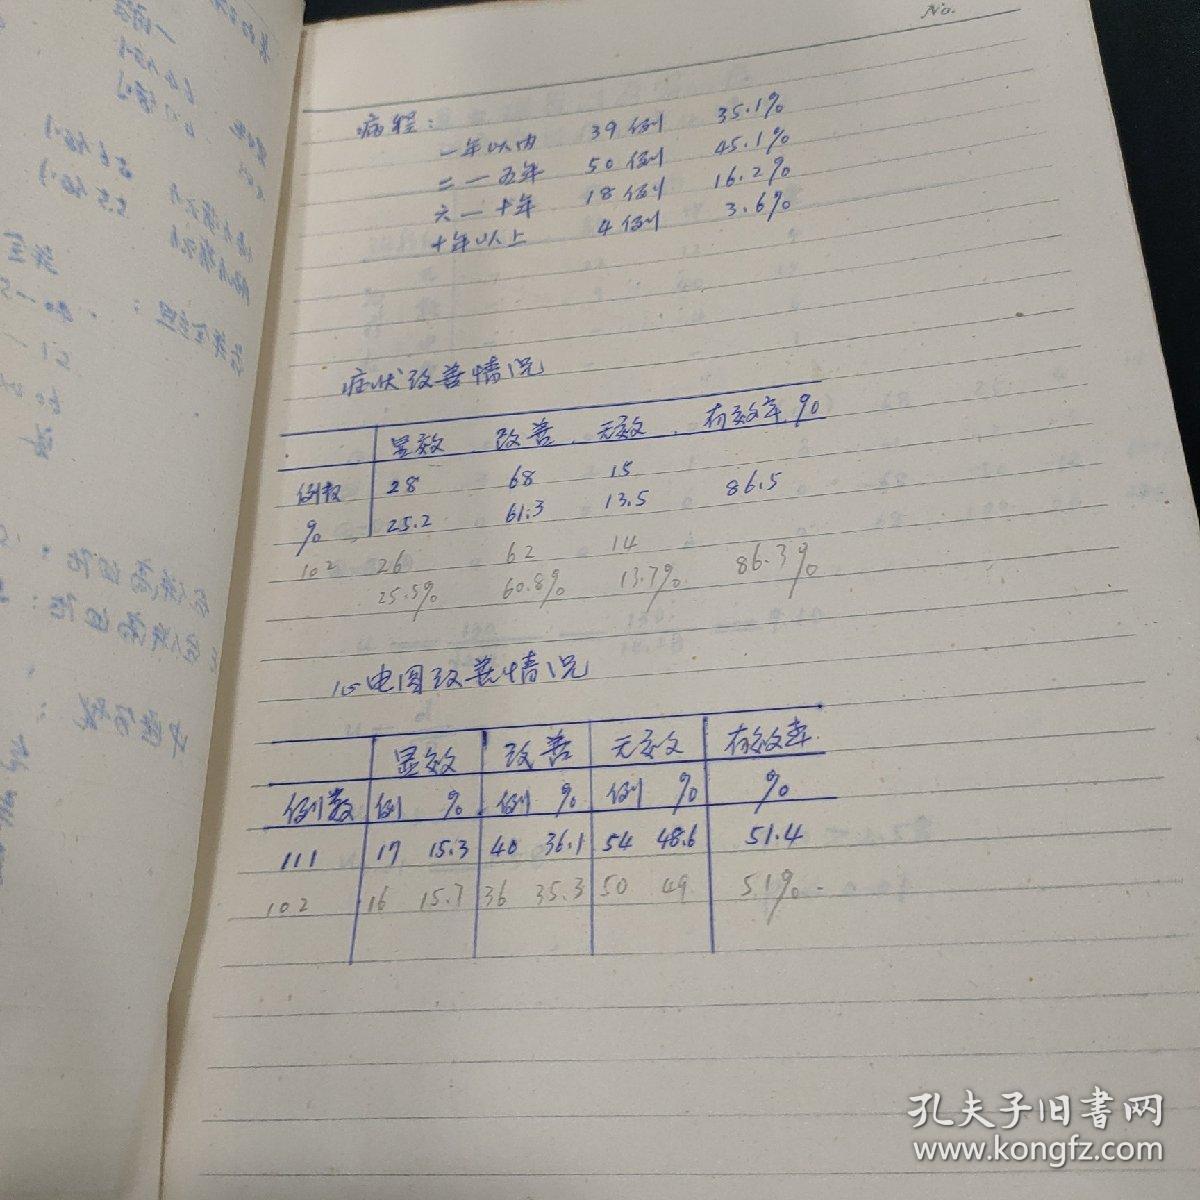 No.
病程：
一年以内 39例 35.1%
二一五年 50例 45.1%
六一十年 18例 16.2%
十年以上 4例 3.6%
症状改善情况
显效 改善 无效 有效率%
例数 28 68 15
% 25.2 61.3 13.5 86.5
102 26 62 14
25.5% 60.8% 13.7% 86.3%
心电图改善情况
显效 改善 无效 有效率
例数 例 % 例 % 例 % %
111 17 15.3 40 36.1 54 48.6 51.4
102 16 15.7 36 35.3 50 49 51%
孔夫子旧书网
www.kongfz.com